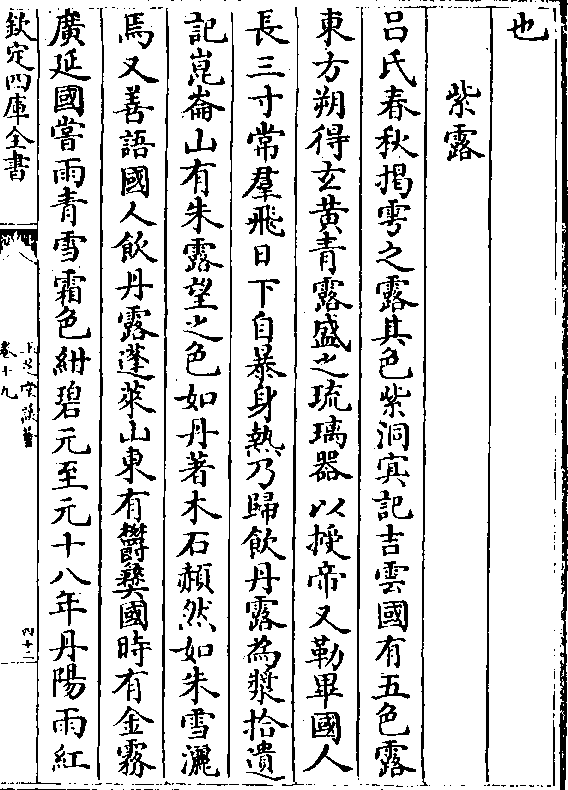 也
紫露
吕氏春秋掲雩之露其色紫洞㝠記吉雲國有五色露
東方朔得𤣥黄青露盛之琉璃器以授帝又勒畢國人
長三寸常羣飛日下自暴身熱乃歸飲丹露為漿拾遺
記崑崙山有朱露望之色如丹著木石赬然如朱雪灑
焉又善語國人飲丹露蓬萊山東有欝夷國時有金霧
廣延國嘗雨青雪霜色紺碧元至元十八年丹陽雨紅
欽定四庫全書
卷十九
四十二